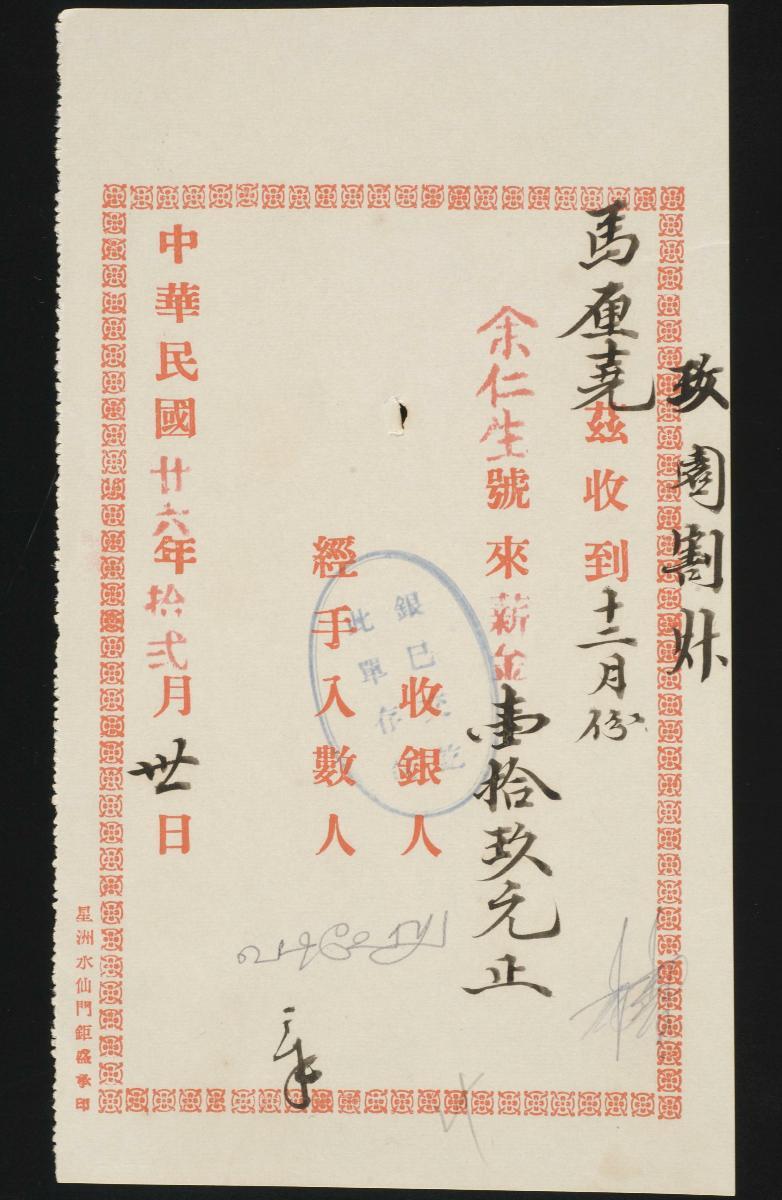 園割
馬厘堯茲收到十二月份
余仁生號來薪金壹拾玖元止
收銀人
經手入數人
銀已交訖
此單存
中華民國廿六年拾弍月卅日
星洲水仙門鉅盛承印